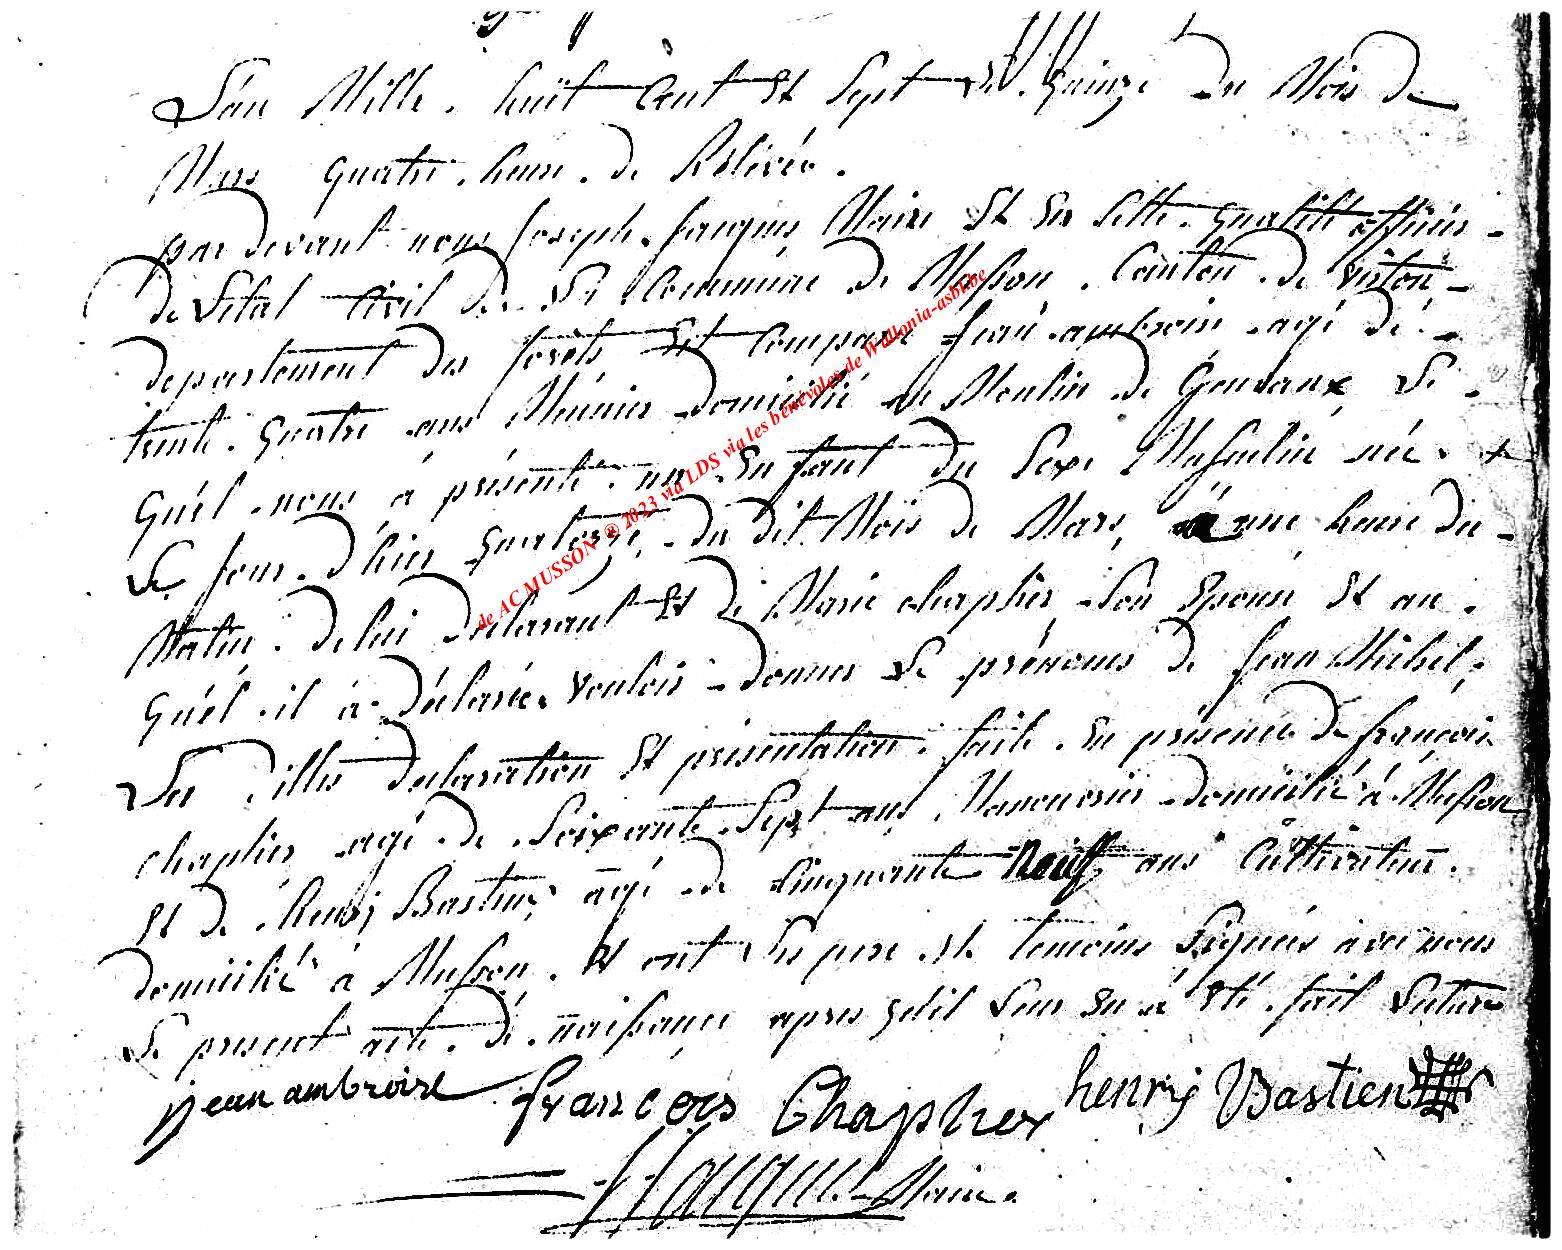 L'an Mille huit Cent Et Sept Le quinze du Mois de
Mars quatre heure de Relevée.
par devant nous Joseph Jacques Maire Et En Cette qualité officier
de L'Etat Civil de La Commune de Musson Canton de virton
departement des forets Est Comparu Jean ambroise agé de
trente quatre ans Meunier domicilié au Moulin de Gouvaux Le
quel nous à présenté un Enfant du Sexe Masculin née
Le Jour d'hier quatorze du dit Mois de Mars à une heure du
Matin de lui declarant Et de Marie chaplier Son Epouse Et au
quel il à déclarée vouloir donner Le prénoms de Jean Michel,
Les dittes declaration Et presentation faite En présence de françois
chaplier agé de Soixante Sept ans Manouvrier domicilié à Musson
Et de henry Bastien agé de Cinquante Neuff ans Cultivateur
domicilié à Musson. Et ont Les pere Et temoins Signés avec nous
Le present acte de naissance apres qu'il Leur En à Eté fait Lecture
jean ambroise françois Chaplier henry Bastien
J Jacques Maire.
de AC MUSSON ® 2023 via LDS via les bénévoles de Wallonia-asbl.be